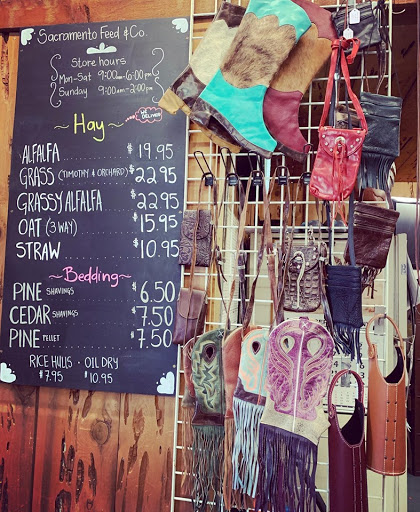 Sacramento Feed & Co.
Store hours
Mon-Sat 9:00am-6:00pm
Sunday 9:00am-2:00pm
~Hay~
WE DELIVER
ALFALFA $19.95
GRASS (TIMOTHY & ORCHARD) $22.95
GRASSY ALFALFA $22.95
OAT (3 WAY) $15.95
STRAW $10.95
~Bedding~
PINE SHAVINGS $6.50
CEDAR SHAVINGS $7.50
PINE PELLET $7.50
RICE HULLS · OIL DRY
$7.95 $10.95